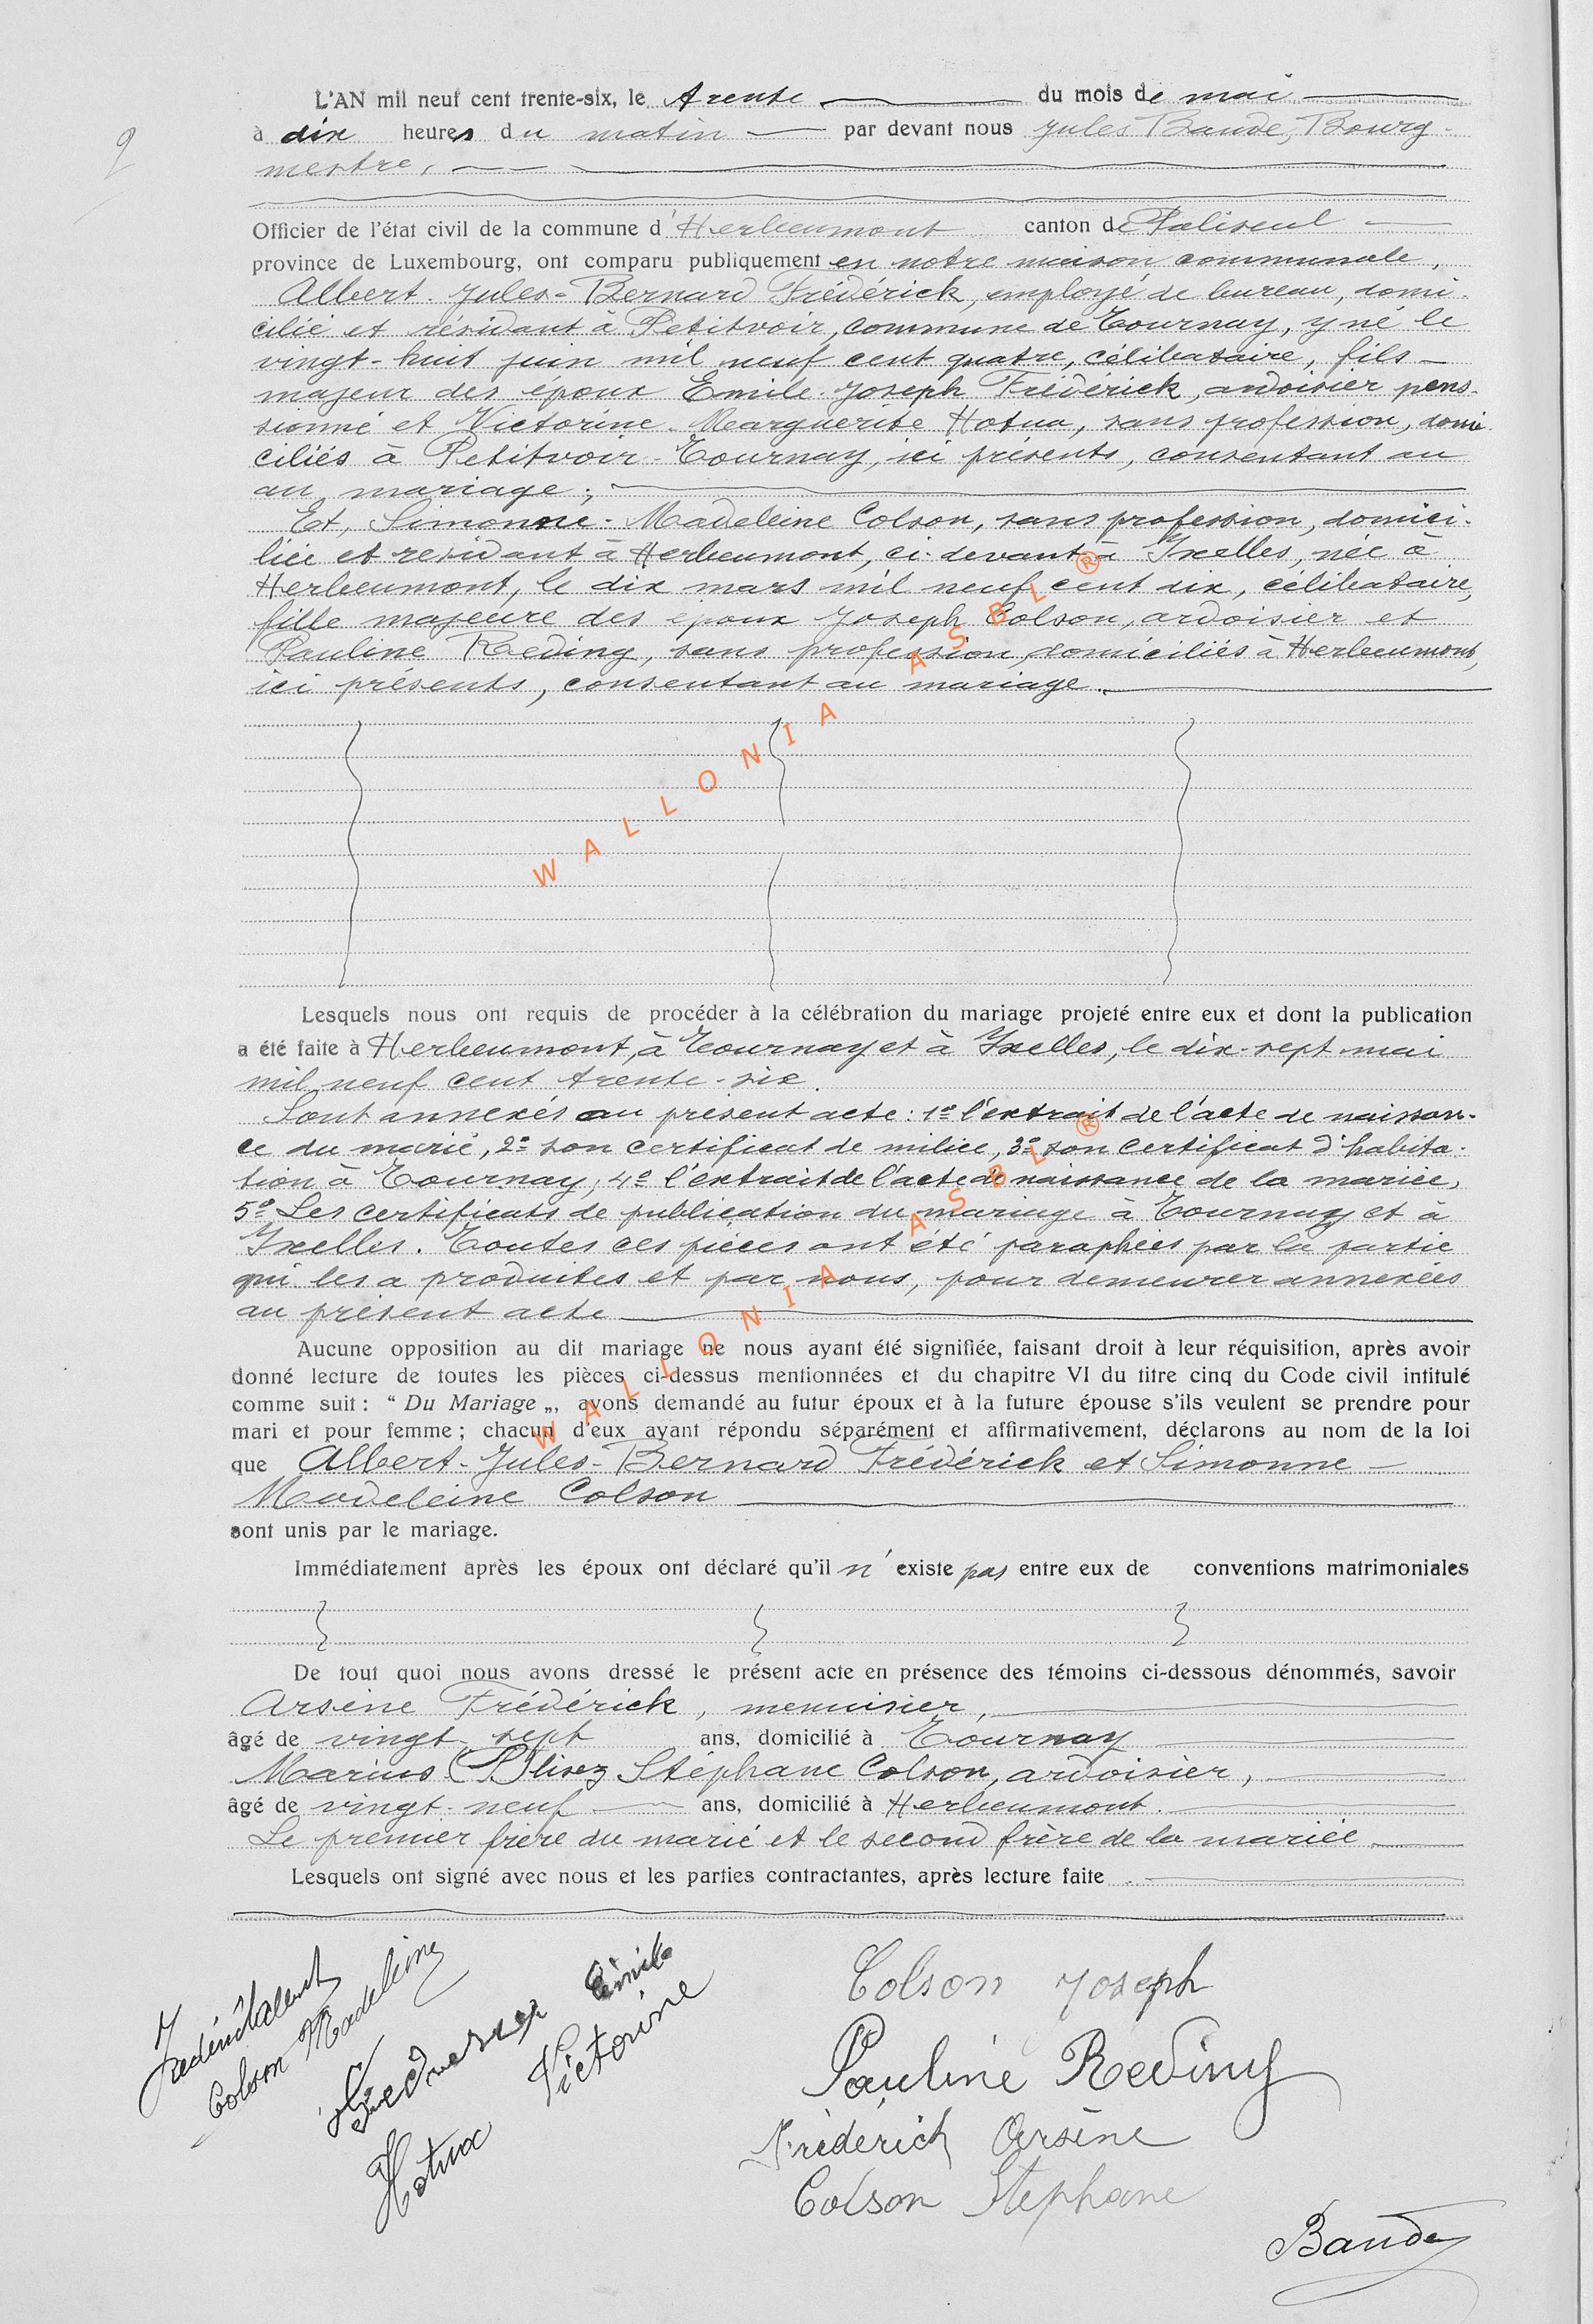 2
L'AN mil neuf cent trente-six, le trente du mois de mai
à dix heures du matin par devant nous Jules Baude, Bourg-
mestre,
Officier de l'état civil de la commune d'Herbeumont canton de Paliseul
province de Luxembourg, ont comparu publiquement en notre maison communale,
Albert-Jules-Bernard Frédérick, employé de bureau, domi-
cilié et résidant à Petitvoir, commune de Tournay, y né le
vingt-huit juin mil neuf cent quatre, célibataire, fils
majeur des époux Emile-Joseph Frédérick, ardoisier pens-
sionné et Victorine-Marguerite Hotua, sans profession, domi-
ciliés à Petitvoir-Tournay, ici présents, consentant au
au mariage;
Et, Simonne-Madeleine Colson, sans profession, domici-
liée et residant à Herbeumont, ci-devant à Ixelles, née à
Herbeumont, le dix mars mil neuf cent dix, célibataire,
fille majeure des époux Joseph Colson, ardoisier et
Pauline Reding, sans profession, domiciliés à Herbeumont,
ici présents, consentant au mariage.
WALLONIA ASBL ®
Lesquels nous ont requis de procéder à la célébration du mariage projeté entre eux et dont la publication
a été faite à Herbeumont, à Tournay et à Ixelles, le dix-sept mai
mil neuf cent trente-six.
Sont annexés au présent acte: 1º l'extrait de l'acte de naissan-
ce du marié, 2º son certificat de milice, 3º son certificat d'habita-
tion à Tournay, 4º l'extrait de l'acte de naissance de la mariée,
5º Les certificats de publication du mariage à Tournay et à
Ixelles. Toutes ces pièces ont été paraphées par la partie
qui les a produites et par nous, pour demeurer annexées
au présent acte
WALLONIA ASBL ®
Aucune opposition au dit mariage ne nous ayant été signifiée, faisant droit à leur réquisition, après avoir
donné lecture de toutes les pièces ci-dessus mentionnées et du chapitre VI du titre cinq du Code civil intitulé
comme suit : “ Du Mariage „, avons demandé au futur époux et à la future épouse s'ils veulent se prendre pour
mari et pour femme ; chacun d'eux ayant répondu séparément et affirmativement, déclarons au nom de la loi
que Albert-Jules-Bernard Frédérick et Simonne
Madeleine Colson
sont unis par le mariage.
Immédiatement après les époux ont déclaré qu'il n'existe pas entre eux de conventions matrimoniales
De tout quoi nous avons dressé le présent acte en présence des témoins ci-dessous dénommés, savoir
Arsène Frédérick, menuisier,
âgé de vingt-sept ans, domicilié à Tournay
Marius (Blisez Stéphane Colson, ardoisier,
âgé de vingt-neuf ans, domicilié à Herbeumont.
Le premier frère du marié et le second frère de la mariée
Lesquels ont signé avec nous et les parties contractantes, après lecture faite
Colson Madeleine
Emile
Hotua Victorine
Colson Joseph
Pauline Reding
Frédérich Arsène
Colson Stephane
Baude